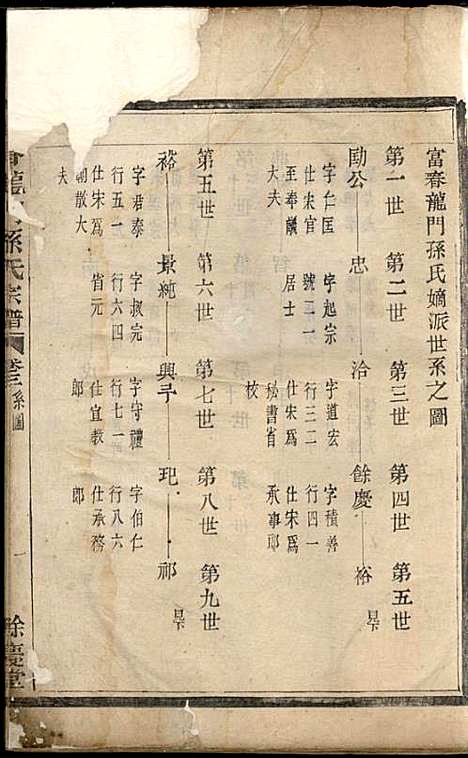 富春龍門孫氏嫡派世系之圖
第一世 第二世 第三世 第四世 第五世
勛公 忠 洽 餘慶 裕
字仁匡 字起宗 字道宏 字積善
仕宋官 號三一 行三二 行四一
至奉議 居士 仕宋爲 仕宋爲
大夫 秘書省 承事郎
校
第五世 第六世 第七世 第八世 第九世
裕 景純 興 玘 祁
字君泰 字叔完 字守禮 字伯仁
行五一 行六四 行七一 行八六
仕宋爲 省元 仕宣教 仕承務
朝散大 郎 郎
夫
龍 孫氏宗譜 卷三 系圖 一 餘慶堂